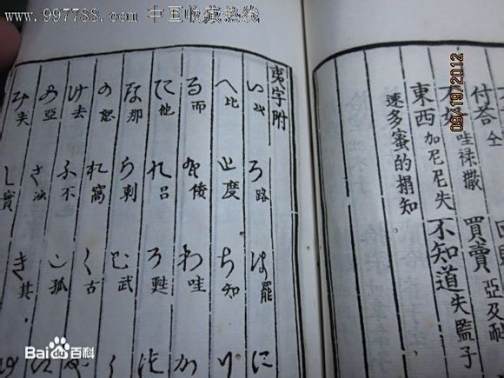 www.997788.com 中国收藏热线
09/19/2012
付荅
不好 哇禄撒 買賣 亞及耐
東西 加尼尼失 不知道 失藍子
速多蜜的榻知
夷字附
い ろ 路 は 罷 に
へ 比 と 度 ち 知 り
る 而 を 倭 わ 哇 か
た 他 れ 呂 そ 甦 つ
な 那 ら 剌 む 武
の 怒 お 窩 く 古
け 去 ふ 不 こ 孤
あ 亞 さ き 其
み し 實
Bai百科